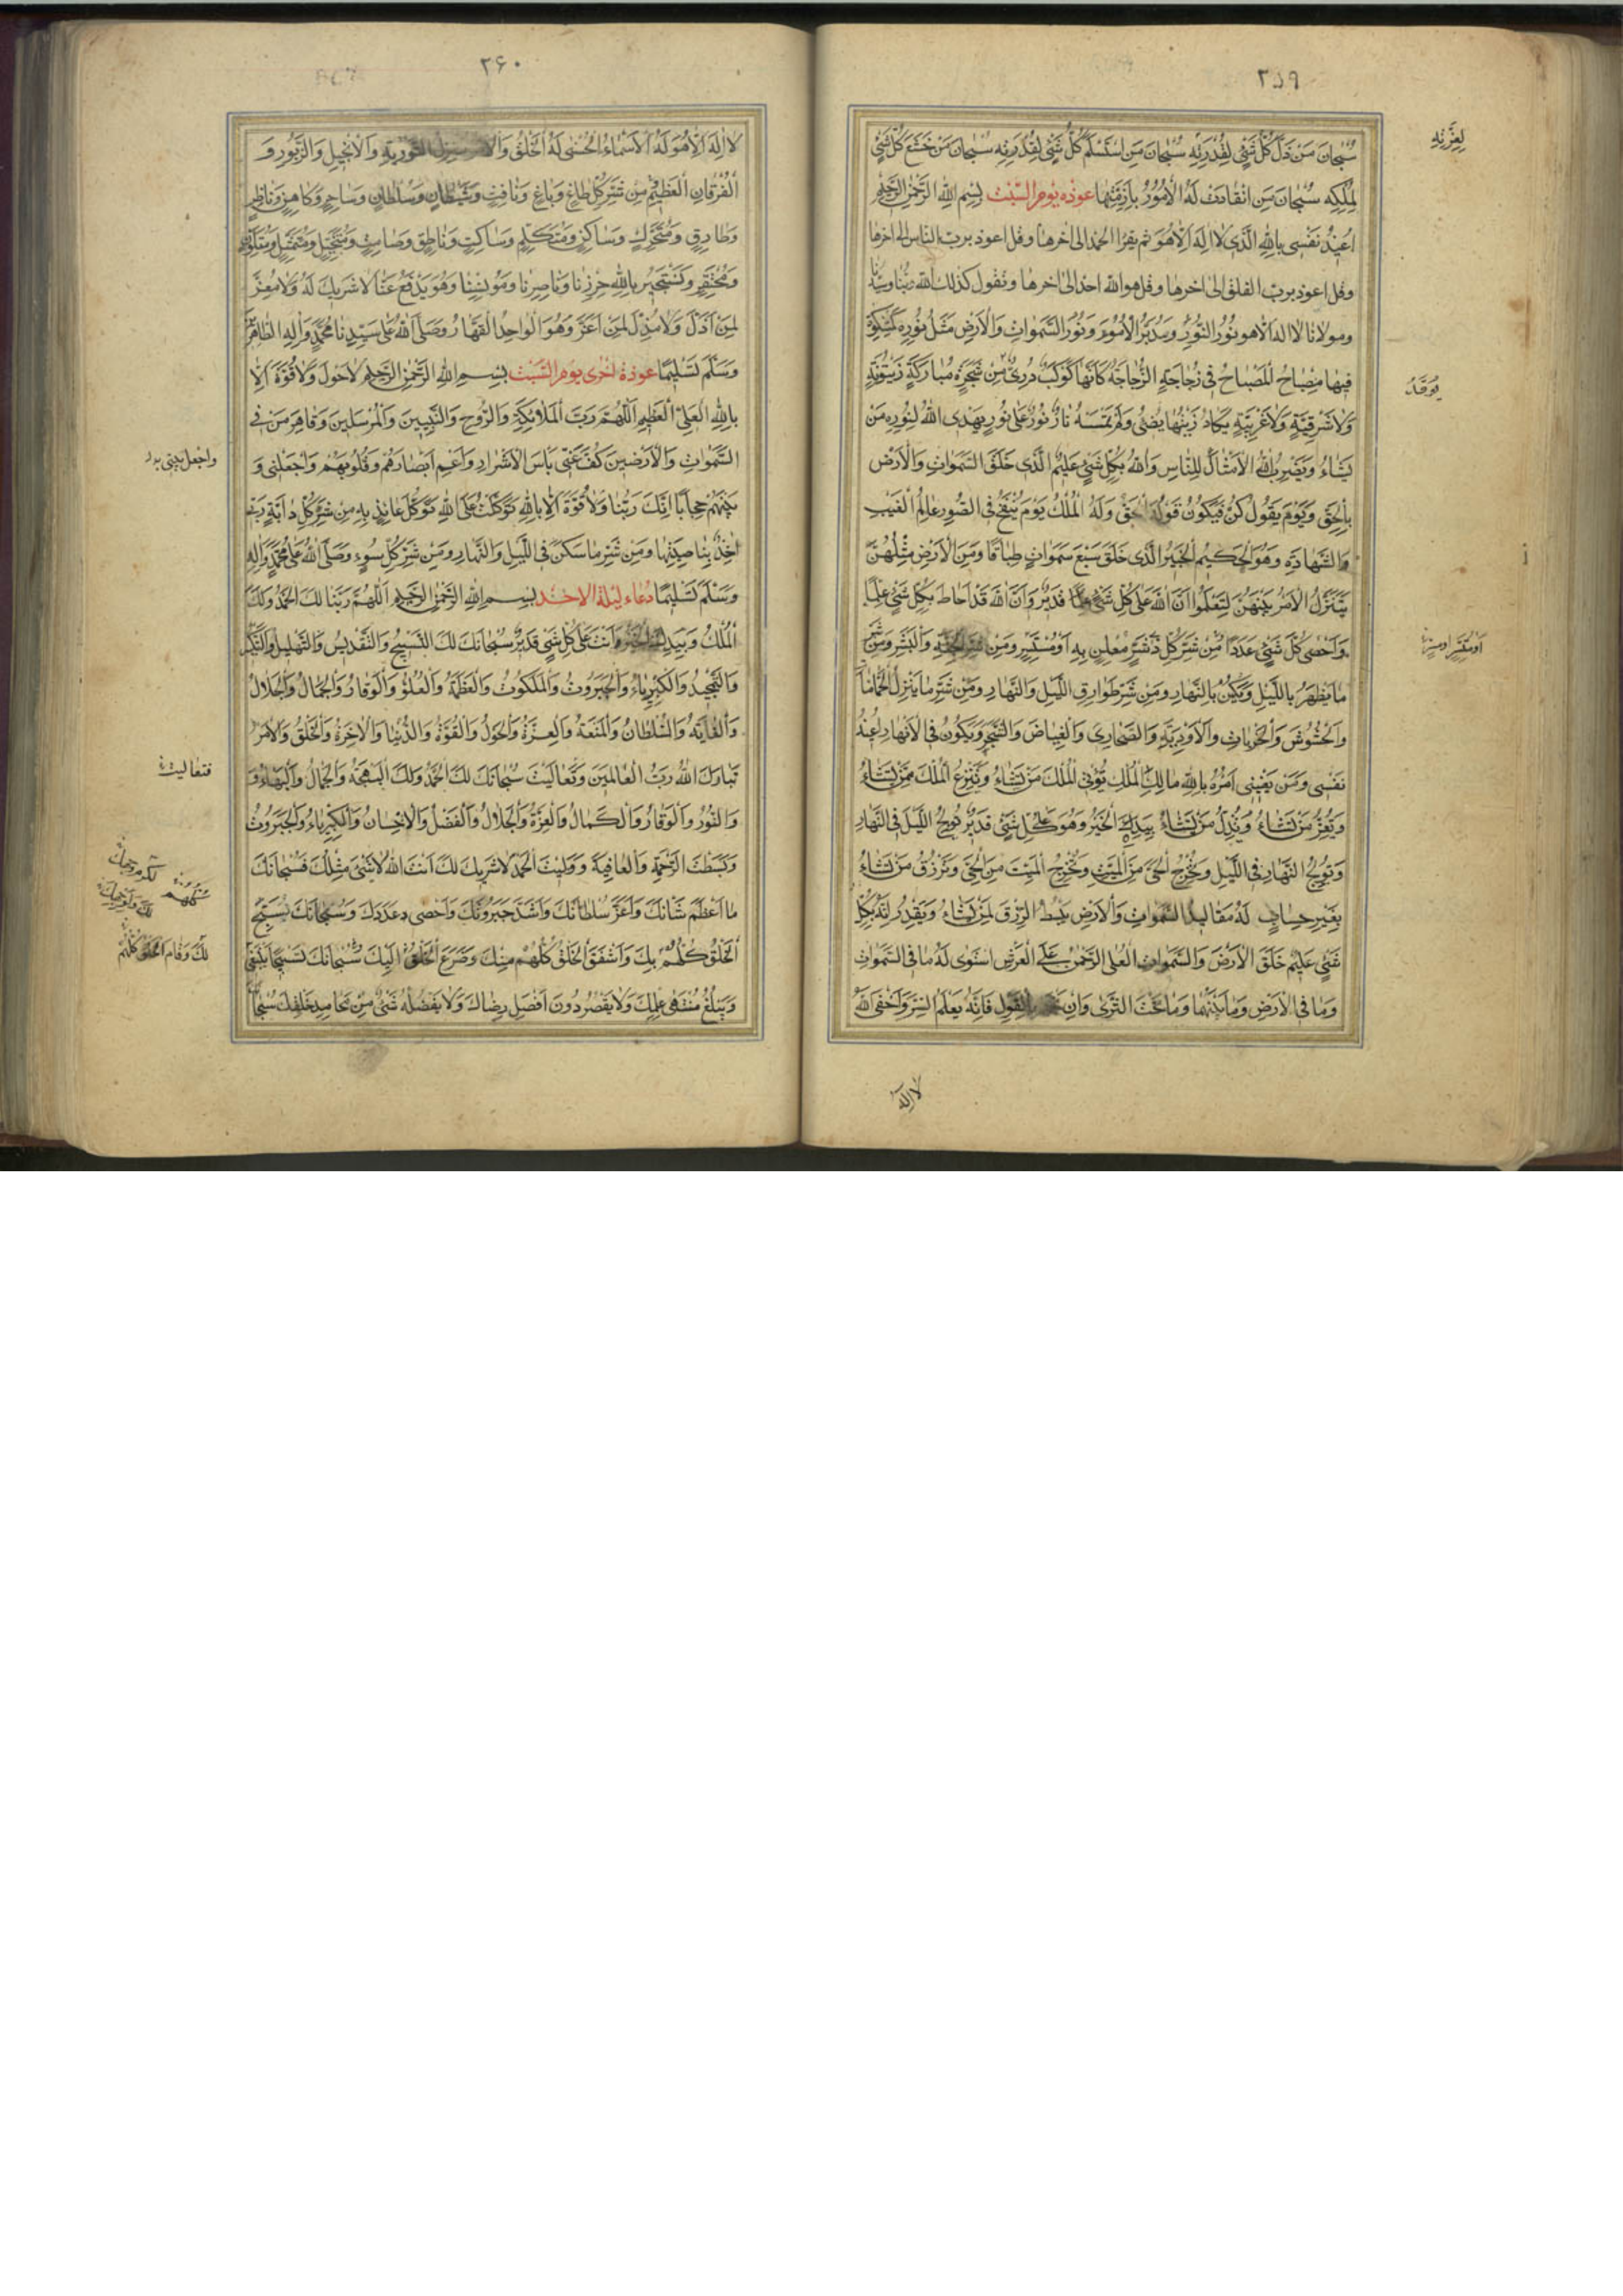 ٢٥٩
سُبْحانَ مَنْ ذَلَّ كُلُّ شَيْءٍ لِقُدْرَتِهِ سُبْحانَ مَنِ اسْتَسْلَمَ كُلُّ شَيْءٍ لِقُدْرَتِهِ سُبْحانَ مَنْ خَضَعَ كُلُّ شَيْءٍ
لِعِزَّتِهِ
لِمُلْكِهِ سُبْحانَ مَنِ انْقادَتْ لَهُ الْأُمُورُ بِأَزِمَّتِها عوذه يوم السَّبْت بِسْمِ اللهِ الرَّحْمنِ الرَّحِيمِ
اُعِيذُ نَفْسِى بِاللهِ الَّذِى لا اِلهَ اِلّا هُوَ ثم يقرا الحمد الى اخرها وقل اعوذ برب الناس الى اخرها
وقل اعوذ برب الفلق الى اخرها وقل هو الله احد الى اخرها وتقول كذلك الله ربنا وسيدنا
ومولانا لا اله الا هو نُورُ النُّورِ وَمُدَبِّرُ الْأُمُورِ وَنُورُ السَّمواتِ وَالْأَرْضِ مَثَلُ نُورِهِ كَمِشْكوةٍ
فِيها مِصْباحٌ الْمِصْباحُ فِى زُجاجَةٍ الزُّجاجَةُ كَأَنَّها كَوْكَبٌ دُرِّىٌّ مِنْ شَجَرَةٍ مُبارَكَةٍ زَيْتُونَةٍ
يُوقَدُ
لا شَرْقِيَّةٍ وَلا غَرْبِيَّةٍ يَكادُ زَيْتُها يُضِىءُ وَلَوْ لَمْ تَمْسَسْهُ نارٌ نُورٌ عَلى نُورٍ يَهْدِى اللهُ لِنُورِهِ مَنْ
يَشاءُ وَيَضْرِبُ اللهُ الْأَمْثالَ لِلنّاسِ وَاللهُ بِكُلِّ شَىْءٍ عَلِيمٌ الَّذِى خَلَقَ السَّمواتِ وَالْأَرْضَ
بِالْحَقِّ وَيَوْمَ يَقُولُ كُنْ فَيَكُونُ قَوْلُهُ الْحَقُّ وَلَهُ الْمُلْكُ يَوْمَ يُنْفَخُ فِى الصُّورِ عالِمُ الْغَيْبِ
وَالشَّهادَةِ وَهُوَ الْحَكِيمُ الْخَبِيرُ الَّذِى خَلَقَ سَبْعَ سَمواتٍ طِباقًا وَمِنَ الْأَرْضِ مِثْلَهُنَّ
يَتَنَزَّلُ الْأَمْرُ بَيْنَهُنَّ لِتَعْلَمُوا اَنَّ اللهَ عَلى كُلِّ شَىْءٍ قَدِيرٌ وَاَنَّ اللهَ قَدْ اَحاطَ بِكُلِّ شَىْءٍ عِلْمًا
وَاَحْصى كُلَّ شَىْءٍ عَدَدًا مِنْ شَرِّ كُلِّ ذِى شَرٍّ مُعْلِنٍ بِهِ اَوْ مُسْتَتِرٍ وَمِنْ شَرِّ الْجِنَّةِ وَالْبَشَرِ وَمِنْ شَرِّ
ما يَظْهَرُ بِاللَّيْلِ وَيَكْمُنُ بِالنَّهارِ وَمِنْ شَرِّ طَوارِقِ اللَّيْلِ وَالنَّهارِ وَمِنْ شَرِّ ما يَنْزِلُ الْحَمّاماتِ
وَالْحُشُوشَ وَالْخَراباتِ وَالْأَوْدِيَةِ وَالصَّحارِىَ وَالْغِياضَ وَالشَّجَرَ وَيَكُونُ فِى الْأَنْهارِ اُعِيذُ
نَفْسِى وَمَنْ يَعْنِينِى اَمْرُهُ بِاللهِ مالِكِ الْمُلْكِ تُؤْتِى الْمُلْكَ مَنْ تَشاءُ وَتَنْزِعُ الْمُلْكَ مِمَّنْ تَشاءُ
وَتُعِزُّ مَنْ تَشاءُ وَتُذِلُّ مَنْ تَشاءُ بِيَدِكَ الْخَيْرُ وَهُوَ عَلى كُلِّ شَىْءٍ قَدِيرٌ تُولِجُ اللَّيْلَ فِى النَّهارِ
وَتُولِجُ النَّهارَ فِى اللَّيْلِ وَتُخْرِجُ الْحَىَّ مِنَ الْمَيِّتِ وَتُخْرِجُ الْمَيِّتَ مِنَ الْحَىِّ وَتَرْزُقُ مَنْ تَشاءُ
بِغَيْرِ حِسابٍ لَهُ مَقالِيدُ السَّمواتِ وَالْأَرْضِ يَبْسُطُ الرِّزْقَ لِمَنْ يَشاءُ وَيَقْدِرُ اِنَّهُ بِكُلِّ
شَىْءٍ عَلِيمٌ خَلَقَ الْأَرْضَ وَالسَّمواتِ الْعُلى الرَّحْمنُ عَلَى الْعَرْشِ اسْتَوى لَهُ ما فِى السَّمواتِ
وَما فِى الْأَرْضِ وَما بَيْنَهُما وَما تَحْتَ الثَّرى وَاِنْ تَجْهَرْ بِالْقَوْلِ فَاِنَّهُ يَعْلَمُ السِّرَّ وَاَخْفى اللهُ
لا اله
٢۶٠
لا اِلهَ اِلّا هُوَ لَهُ الْأَسْماءُ الْحُسْنى لَهُ الْخَلْقُ وَالْأَمْرُ مُنْزِلُ التَّوْرِيةِ وَالْإِنْجِيلِ وَالزَّبُورِ وَ
الْفُرْقانِ الْعَظِيمِ مِنْ شَرِّ كُلِّ طاغٍ وَباغٍ وَنافِثٍ وَشَيْطانٍ وَسُلْطانٍ وَساحِرٍ وَكاهِنٍ وَناظِرٍ
وَطارِقٍ وَمُتَحَرِّكٍ وَساكِنٍ وَمُتَكَلِّمٍ وَساكِتٍ وَناطِقٍ وَصامِتٍ وَمُتَخَيِّلٍ وَمُتَمَثِّلٍ وَمُتَلَوِّنٍ
وَمُحْتَقِرٍ وَنَسْتَجِيرُ بِاللهِ حِرْزِنا وَناصِرِنا وَمُونِسِنا وَهُوَ يَدْفَعُ عَنّا لا شَرِيكَ لَهُ وَلا مُعِزَّ
لِمَنْ اَذَلَّ وَلا مُذِلَّ لِمَنْ اَعَزَّ وَهُوَ الْواحِدُ الْقَهّارُ وَصَلَّى اللهُ عَلى سَيِّدِنا مُحَمَّدٍ وَآلِهِ الطّاهِرِينَ
وَسَلَّمَ تَسْلِيمًا عوذة اخرى يوم السَّبْت بِسْمِ اللهِ الرَّحْمنِ الرَّحِيمِ لا حَوْلَ وَلا قُوَّةَ اِلّا
بِاللهِ الْعَلِىِّ الْعَظِيمِ اَللّهُمَّ رَبَّ الْمَلائِكَةِ وَالرُّوحِ وَالنَّبِيِّينَ وَالْمُرْسَلِينَ وَقاهِرَ مَنْ فِى
السَّمواتِ وَالْأَرَضِينَ كُفَّ عَنِّى بَأْسَ الْأَشْرارِ وَاَعْمِ اَبْصارَهُمْ وَقُلُوبَهُمْ وَاجْعَلْنِى وَ
واجعل بينى
بَيْنَهُمْ حِجابًا اِنَّكَ رَبُّنا وَلا قُوَّةَ اِلّا بِاللهِ تَوَكَّلْتُ عَلَى اللهِ تَوَكُّلَ عائِذٍ بِهِ مِنْ شَرِّ كُلِّ دابَّةٍ رَبِّى
آخِذٌ بِناصِيَتِها وَمِنْ شَرِّ ما سَكَنَ فِى اللَّيْلِ وَالنَّهارِ وَمِنْ شَرِّ كُلِّ سُوءٍ وَصَلَّى اللهُ عَلى مُحَمَّدٍ وَآلِهِ
وَسَلَّمَ تَسْلِيمًا دُعاء ليلة الاحَد بِسْمِ اللهِ الرَّحْمنِ الرَّحِيمِ اَللّهُمَّ رَبَّنا لَكَ الْحَمْدُ وَلَكَ
الْمُلْكُ وَبِيَدِكَ الْخَيْرُ وَاَنْتَ عَلى كُلِّ شَىْءٍ قَدِيرٌ سُبْحانَكَ لَكَ التَّسْبِيحُ وَالتَّقْدِيسُ وَالتَّهْلِيلُ وَالتَّكْبِيرُ
وَالتَّمْجِيدُ وَالْكِبْرِياءُ وَالْجَبَرُوتُ وَالْمَلَكُوتُ وَالْعَظَمَةُ وَالْعُلُوُّ وَالْوَقارُ وَالْجَمالُ وَالْجَلالُ
وَالْغايَةُ وَالسُّلْطانُ وَالْمَنَعَةُ وَالْعِزَّةُ وَالْحَوْلُ وَالْقُوَّةُ وَالدُّنْيا وَالْآخِرَةُ وَالْخَلْقُ وَالْأَمْرُ
تَبارَكَ اللهُ رَبُّ الْعالَمِينَ وَتَعالَيْتَ سُبْحانَكَ لَكَ الْحَمْدُ وَلَكَ الْبَهْجَةُ وَالْجَمالُ وَالْبَهاءُ وَ
فتعاليت
وَالنُّورُ وَالْوَقارُ وَالْكَمالُ وَالْعِزَّةُ وَالْجَلالُ وَالْفَضْلُ وَالْإِحْسانُ وَالْكِبْرِياءُ وَالْجَبَرُوتُ
وَبَسَطْتَ الرَّحْمَةَ وَالْعافِيَةَ وَوَلِيتَ الْحَمْدَ لا شَرِيكَ لَكَ اَنْتَ اللهُ لا شَىْءَ مِثْلُكَ فَسُبْحانَكَ
ما اَعْظَمَ شَأْنَكَ وَاَعَزَّ سُلْطانَكَ وَاَشَدَّ جَبَرُوتَكَ وَاَحْصى عَدَدَكَ وَسُبْحانَكَ يُسَبِّحُ
الْخَلْقُ كُلُّهُمْ بِكَ وَاَشْفَقَ الْخَلْقُ كُلُّهُمْ مِنْكَ وَضَرَعَ الْخَلْقُ اِلَيْكَ سُبْحانَكَ تَسْبِيحًا يَنْبَغِى
لَكَ وَقامَ الْخَلْقُ كُلُّهُمْ
وَيَبْلُغُ مُنْتَهى عِلْمِكَ وَلا يَقْصُرُ دُونَ اَفْضَلِ رِضاكَ وَلا يَفْضُلُهُ شَىْءٌ مِنْ مَحامِدِ خَلْقِكَ سُبْحانَ